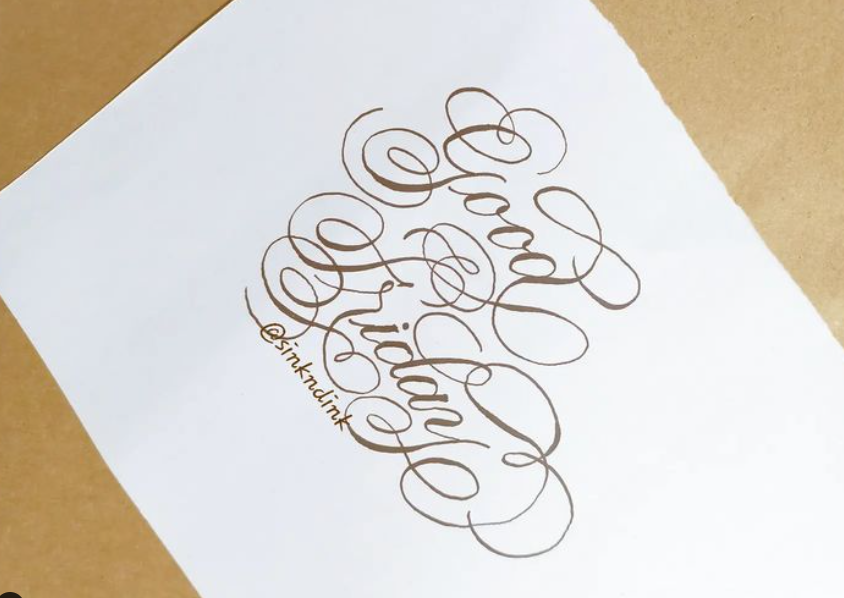 Good
Friday
@sinkndink